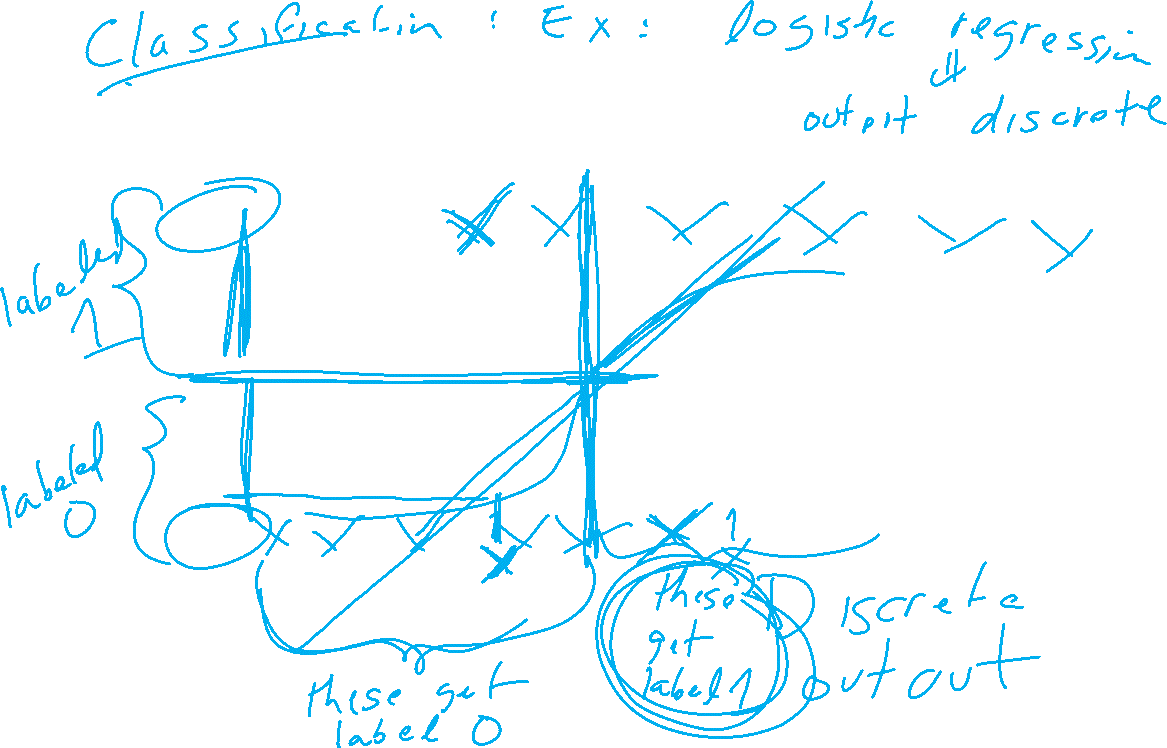 Classification : Ex: logistic regression
⇓
output discrete
labeled
1
labeled
0
1
these get
label 0
these
get
label 1
Discrete
output